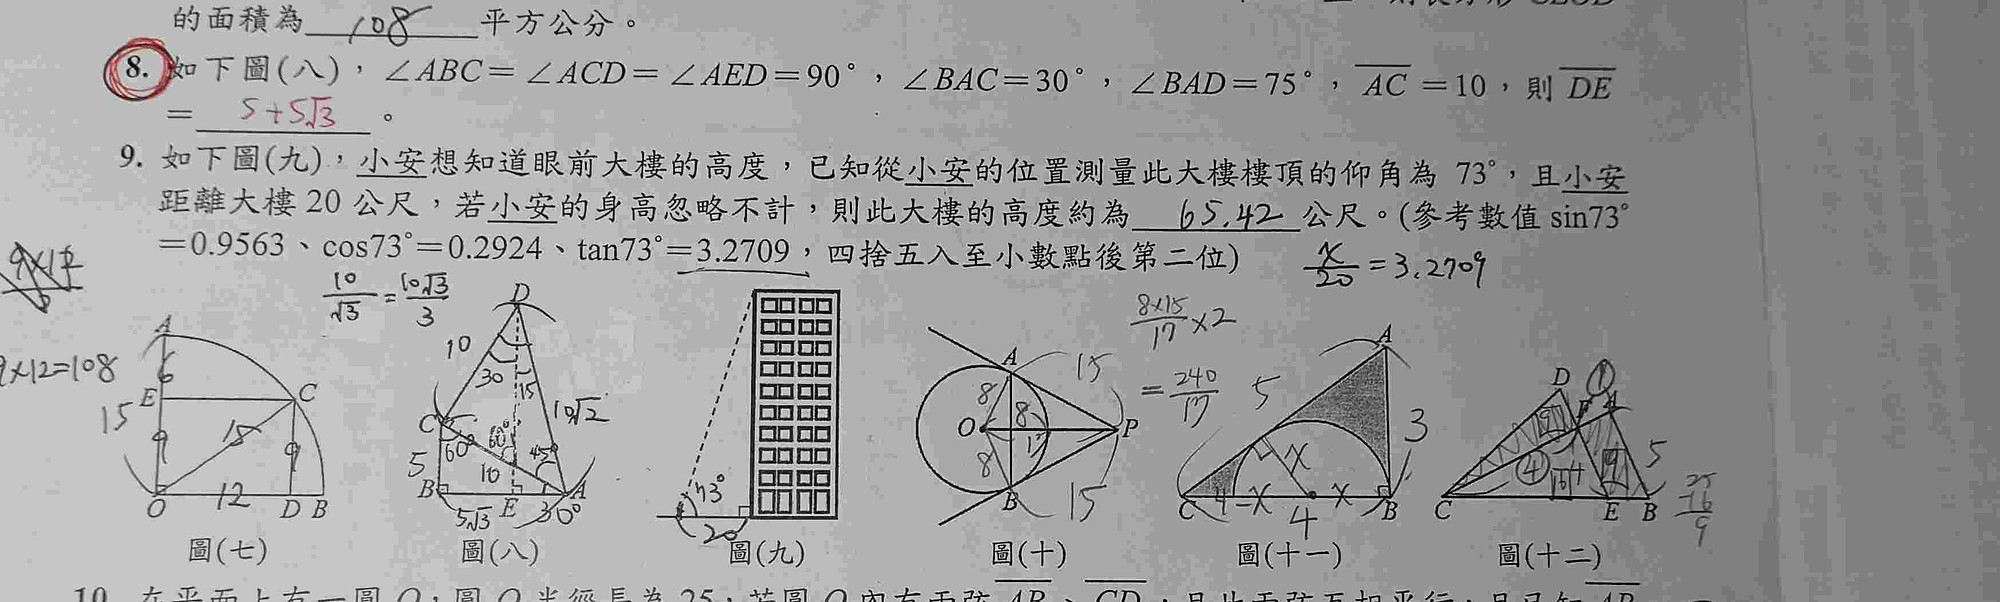 的面積為 108 平方公分。
8. 如下圖(八)，∠ABC=∠ACD=∠AED=90°，∠BAC=30°，∠BAD=75°，AC=10，則DE
= 5+5√3 。
9. 如下圖(九)，小安想知道眼前大樓的高度，已知從小安的位置測量此大樓樓頂的仰角為 73°，且小安
距離大樓 20 公尺，若小安的身高忽略不計，則此大樓的高度約為 65.42 公尺。(參考數值 sin73°
=0.9563、cos73°=0.2924、tan73°=3.2709，四捨五入至小數點後第二位)
x/20 = 3.2709
10/√3 = 10√3/3
9×12=108
A 6 E 15 9 15 C 9 O 12 D B
D 10 30 15 10√2 C 60° 60° 45° 5 10 B 5√3 E 30° A
73° 20
A 15 8 8 O P 8 B 15
8×15/17 ×2
= 240/17
A 5 3 x C 4-x 4 x B
D F A 5 C 4 E B
圖(七) 圖(八) 圖(九) 圖(十) 圖(十一) 圖(十二)
10. 在平面上有一圓 O，圓 O 半徑長為 25，若圓 O 內有兩弦 AB、CD，且此兩弦互相平行，且已知 AB